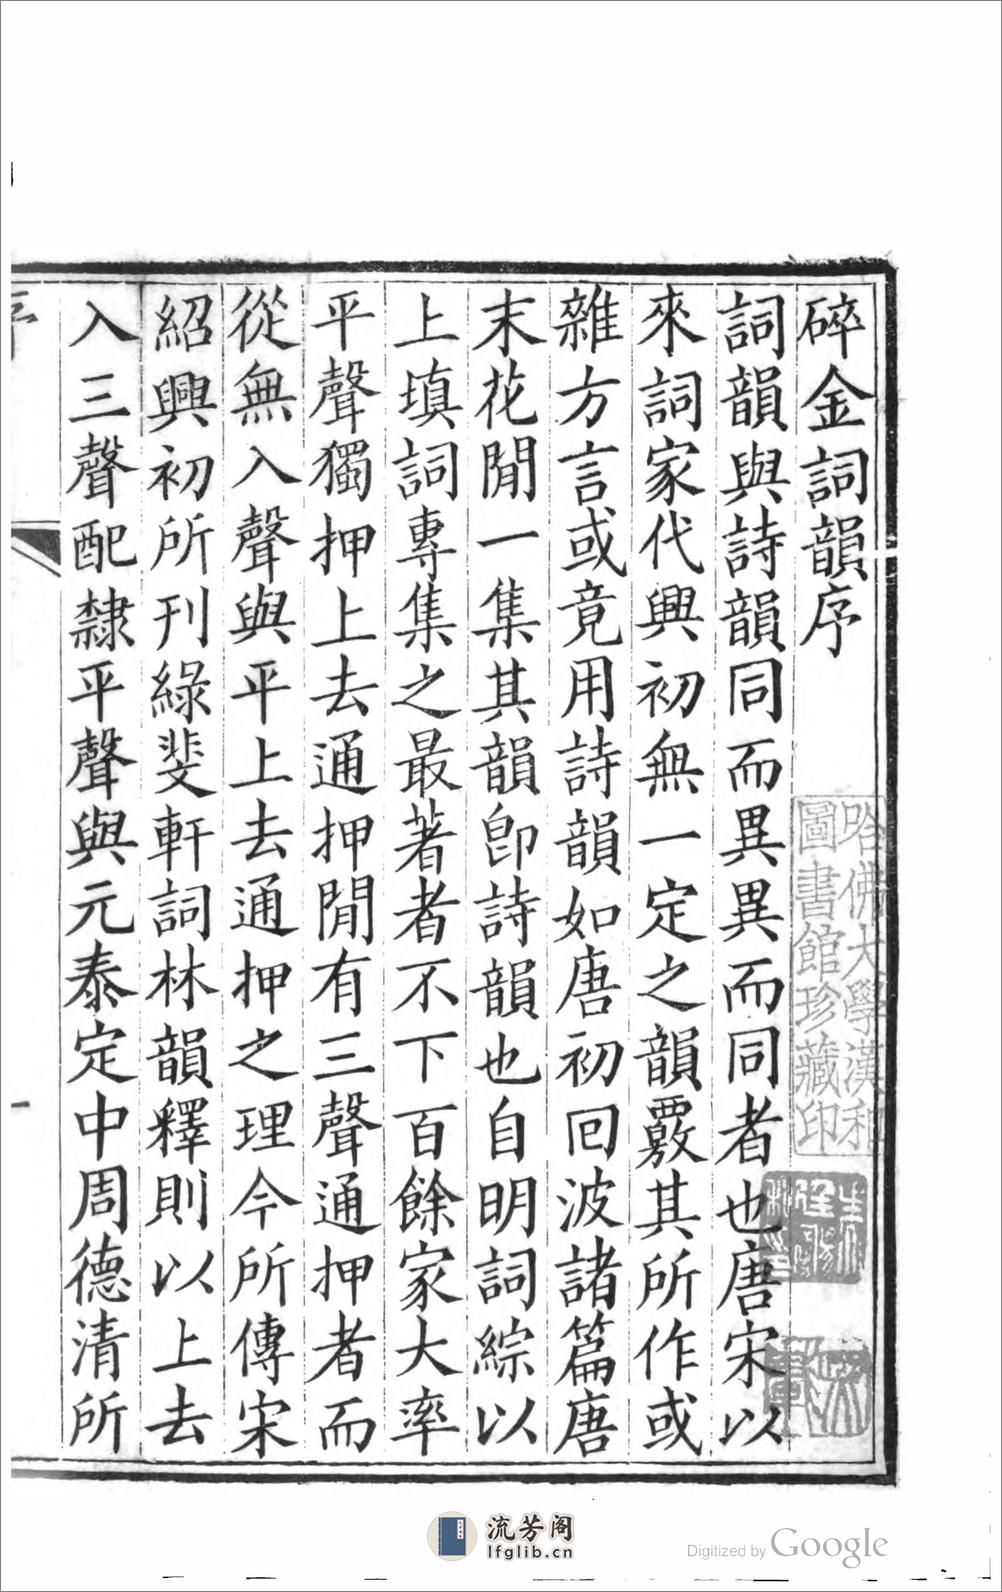 碎金詞韻序
詞韻與詩韻同而異異而同者也唐宋以
來詞家代興初無一定之韻覈其所作或
雜方言或竟用詩韻如唐初回波諸篇唐
末花閒一集其韻卽詩韻也自明詞綜以
上塡詞專集之最著者不下百餘家大率
平聲獨押上去通押閒有三聲通押者而
從無入聲與平上去通押之理今所傳宋
紹興初所刊綠斐軒詞林韻釋則以上去
入三聲配隸平聲與元泰定中周德清所
序
一
哈佛大學漢和
圖書館珍藏印
流芳阁
lfglib.cn
Digitized by Google